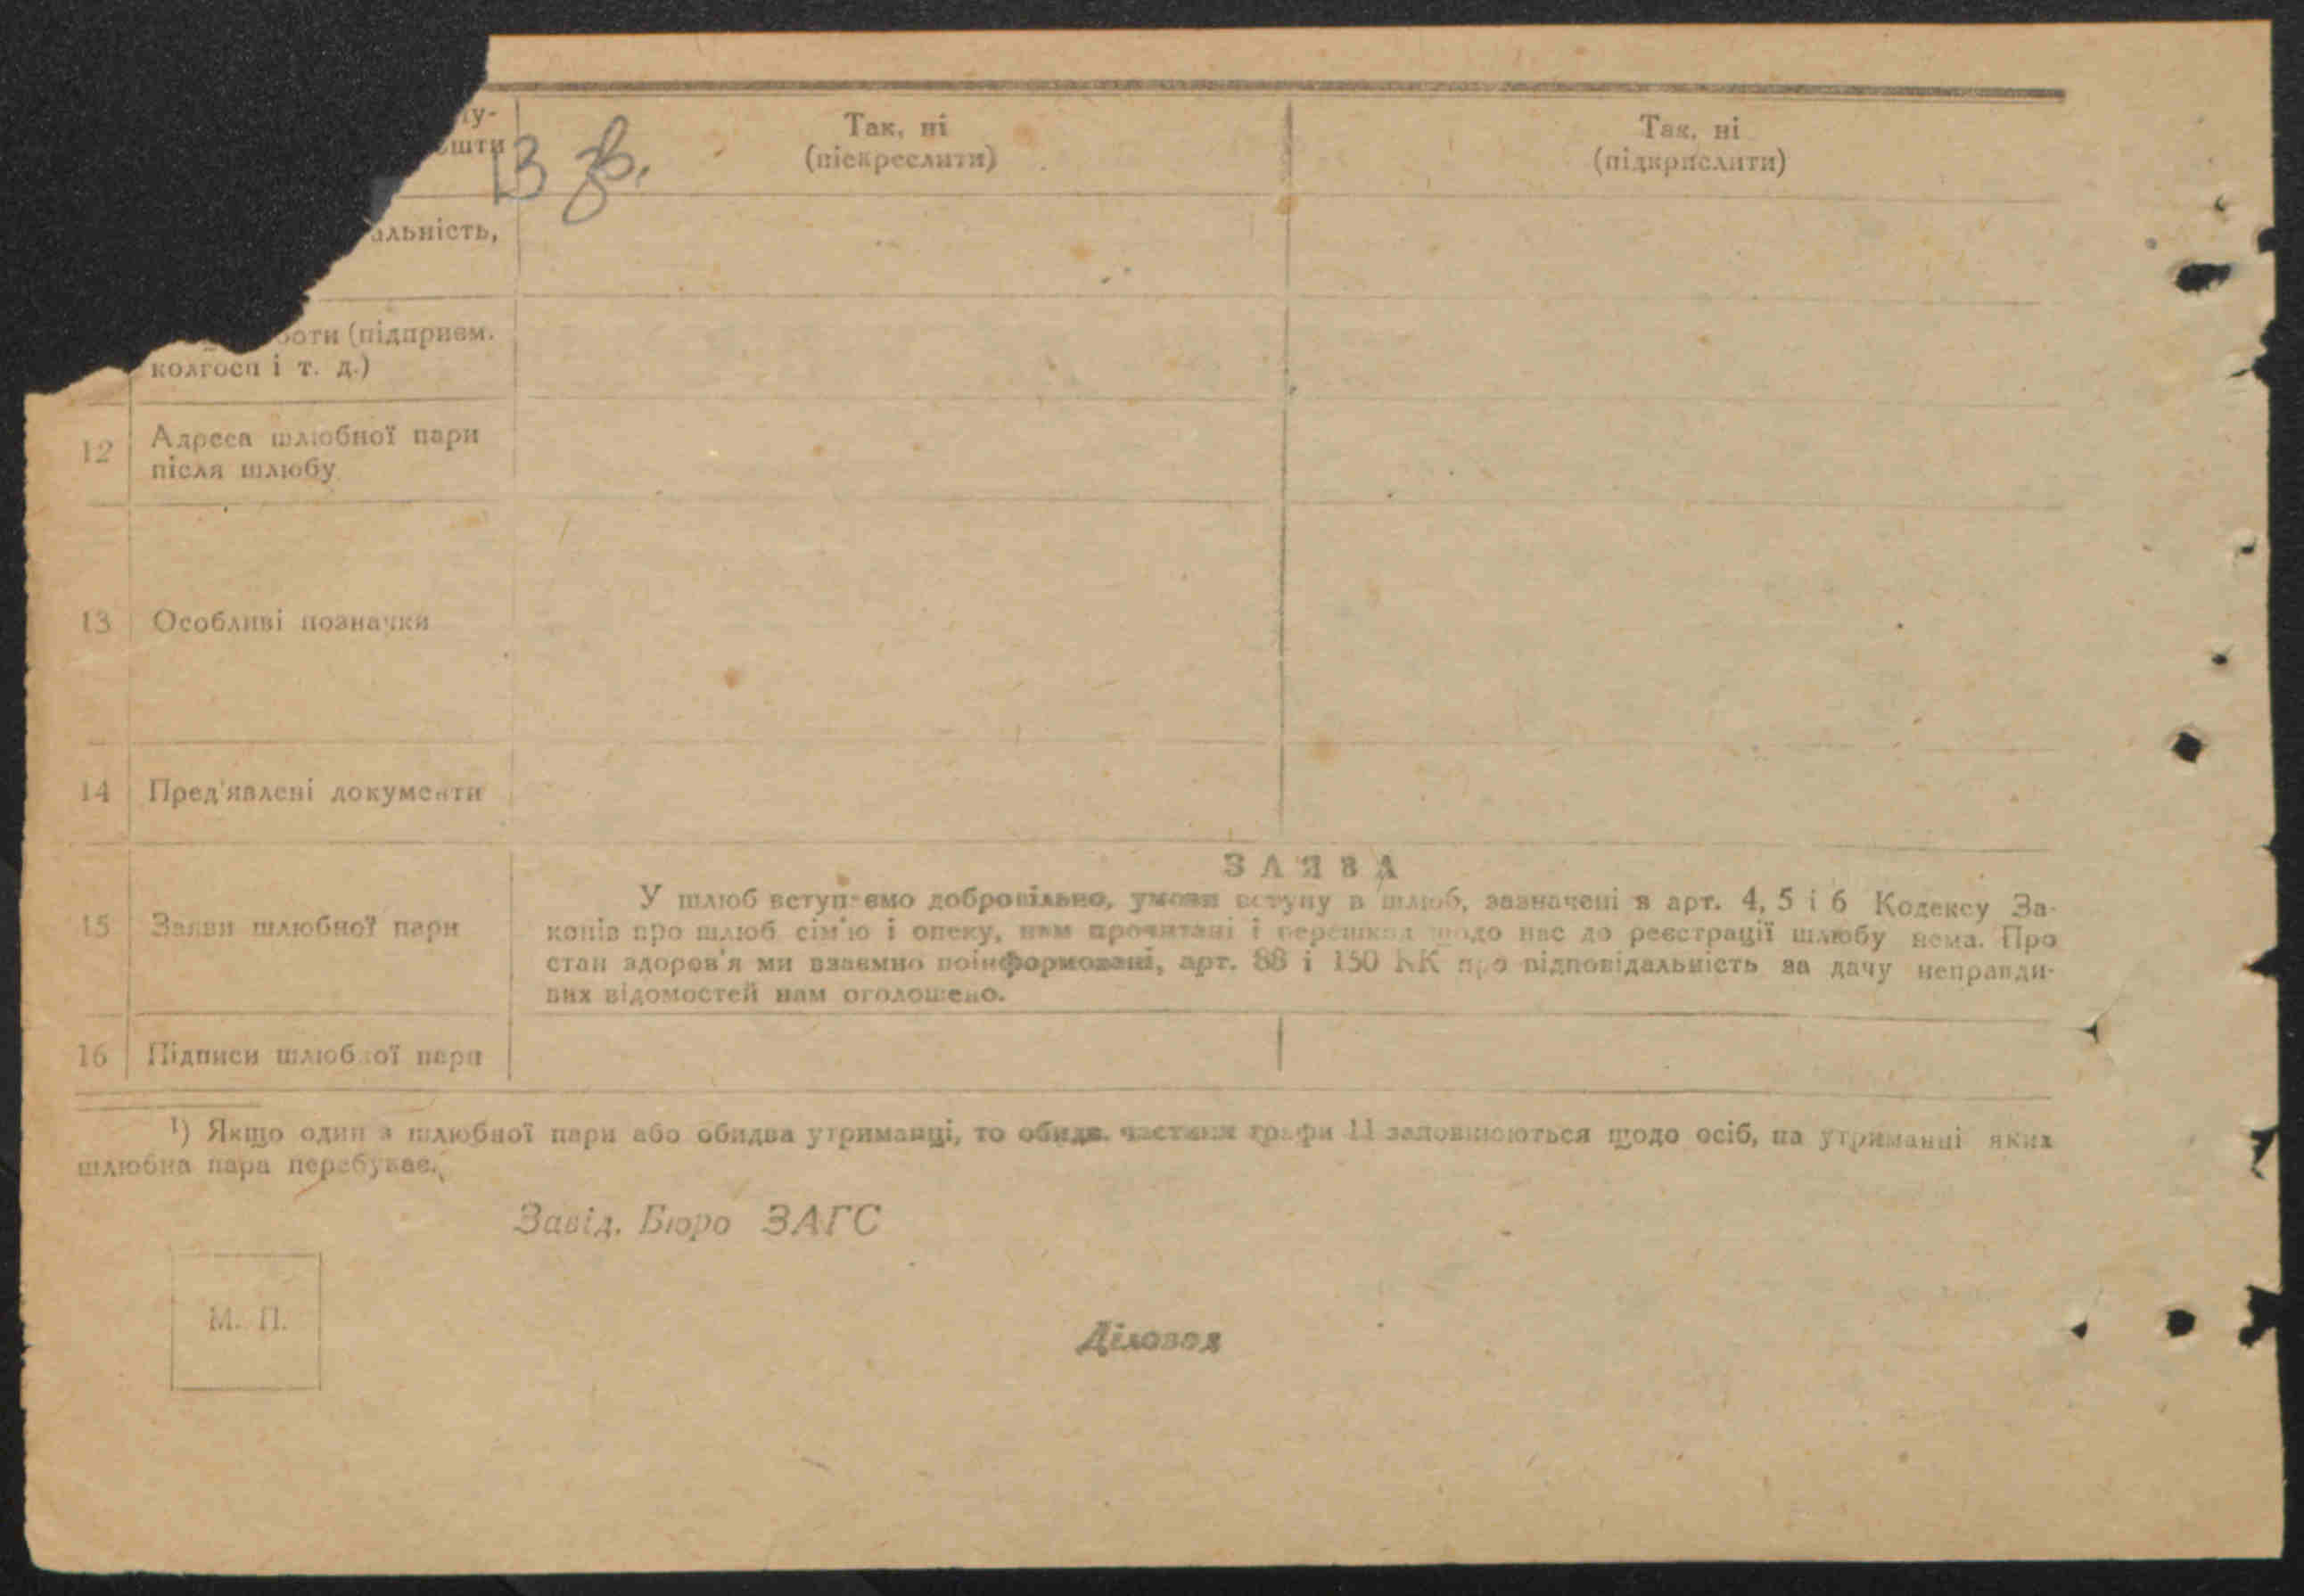 Так, ні
(піскреслити)
Так, ні
(підкрислити)
ту-
ошти
13 зв.
альність,
боти (підприєм.
колгосп і т. д.)
12 Адреса шлюбної пари
після шлюбу
13 Особливі позначки
14 Пред'явлені документи
ЗАЯВА
15 Заяви шлюбної пари
У шлюб вступаємо добровільно, умови вступу в шлюб, зазначені в арт. 4, 5 і 6 Кодексу За-
конів про шлюб сім'ю і опеку, нам прочитані і перешкод щодо нас до реєстрації шлюбу нема. Про
стан здоров'я ми взаємно поінформовані, арт. 88 і 150 КК про відповідальність за дачу неправди-
вих відомостей нам оголошено.
16 Підписи шлюбної пари
1) Якщо один з шлюбної пари або обидва утриманці, то обидві частини графи 11 заповнюються щодо осіб, на утриманні яких
шлюбна пара перебуває.
Завід. Бюро ЗАГС
М. П.
Діловод